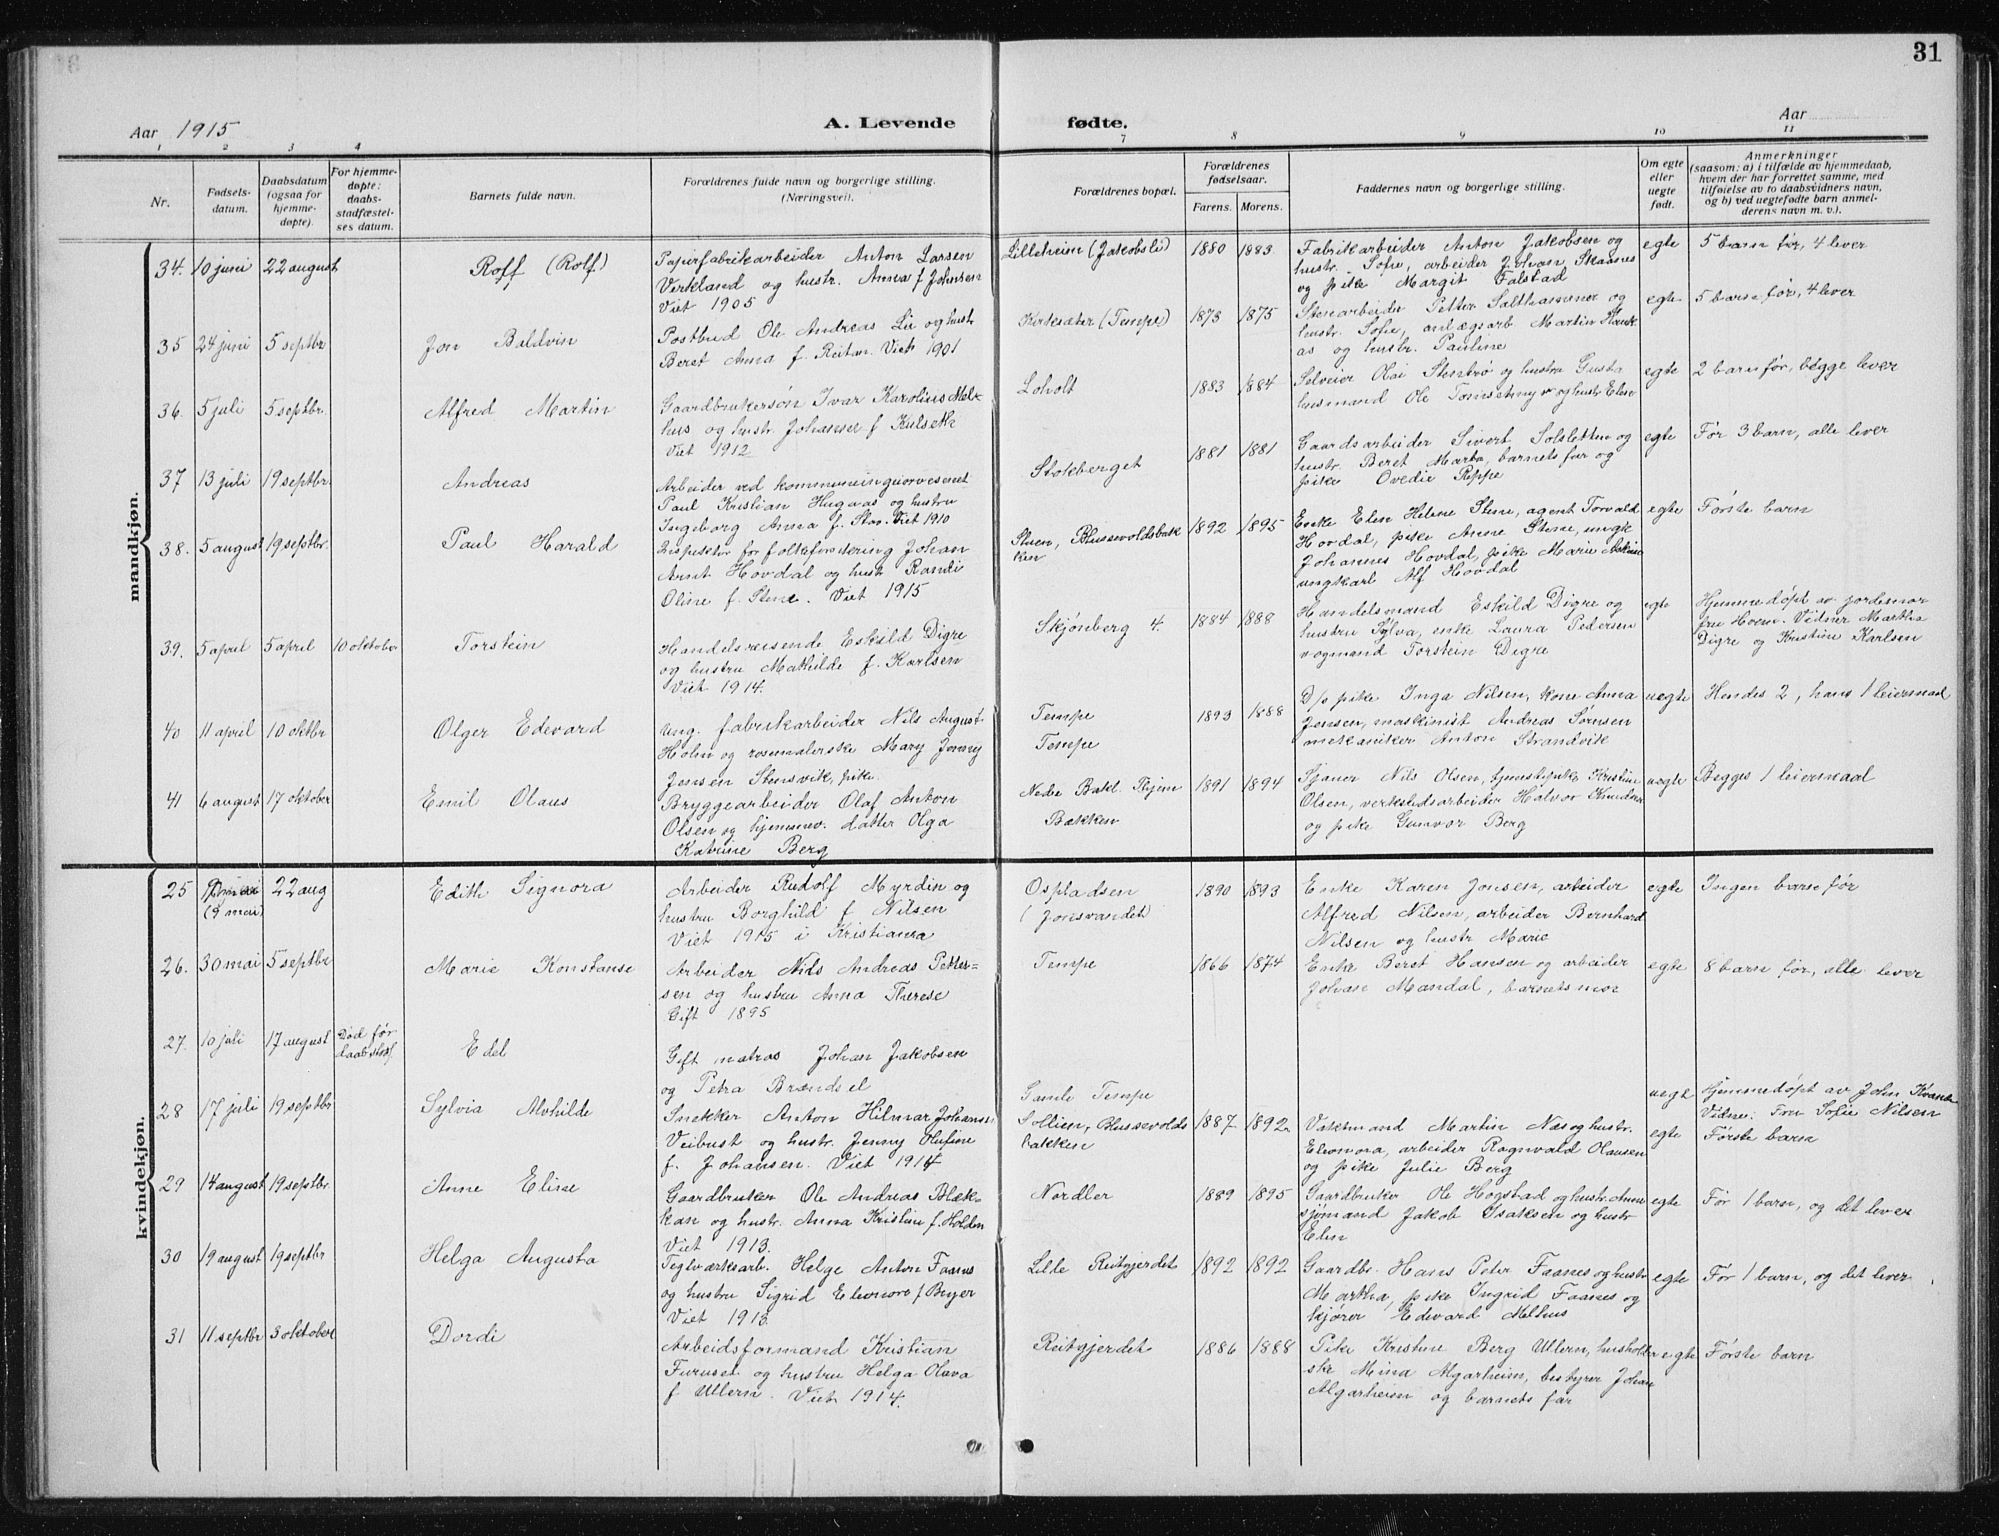 31
Aar 1915
A. Levende fødte.
Aar
1 2 3 4 7 8 9 10 11
Nr.
Fødsels-
datum.
Daabsdatum
(ogsaa for
hjemme-
døpte).
For hjemme-
døpte:
daabs-
stadfæstel-
ses datum.
Barnets fulde navn.
Forældrenes fulde navn og borgerlige stilling.
(Næringsvei).
Forældrenes bopæl.
Forældrenes
fødselsaar.
Farens. Morens.
Faddernes navn og borgerlige stilling.
Om egte
eller
uegte
født.
Anmerkninger
(saasom: a) i tilfælde av hjemmedaab,
hvem der har forrettet samme, med
tilføielse av to daabsvidners navn,
og b) ved uegtefødte barn anmel-
derens navn m. v.).
mandkjøn.
34. 10 juni 22 august Roff (Rolf)
Papirfabrikarbeider Anton Larsen
Verkland og hustr. Anna f Johnsen
Viet 1905
Lilleheim (Jakobsli) 1880 1883
Fabrikarbeider Anton Jakobsen og
hustr. Sofie, arbeider Johan Skaanes
og pike Margit Falstad
egte 5 barn før, 4 lever
35 24 juni 5 septbr Jon Baldvin
Postbud Ole Andreas Lie og hustr
Beret Anna f. Reitan. Viet 1901
Kirksæter (Tempe) 1873 1875
Stenarbeider Petter Salthammer og
hustr. Sofie, anlægsarb Martin
as og hustr. Pauline
egte 5 barn før, 4 lever
36. 5 juli 5 septbr. Alfred Martin
Gaardbrukersøn Ivar Karolius Mel-
hus og hustr. Johanna f Kulseth
Viet 1912
Loholt 1883 1884
Selveier Olai Stentrø og hustru Gusta
husmand Ole og hustr Elen
egte 2 barn før, begge lever
37 13 juli 19 septbr. Andreas
Arbeider ved kommuneingniørvesenet
Paul Kristian Hugaas og hustru
Ingeborg Anna f. Viet 1910
Stokberget 1881 1881
Gaardsarbeider Sivert Solsletten og
hustr. Beret Marta, barnets far og
pike Ovedie Reppe
egte Før 3 barn, alle lever
38. 5 august 19 septbr. Paul Harald
Inspektør for folkeforsikring Johan
Arnt Hovdal og hustr Randi
Oline f. Stene. Viet 1915
Stuen, Blussevoldsbak
ken 1892 1895
Enke Elen Helene Stene, agent Torvald
Hovdal, pike Anne Stene, ungk
Johannes Hovdal, pike Marie
ungkarl Alf Hovdal
egte Første barn
39. 5 april 5 april 10 oktober Torstein
Handelsreisende Eskild Digre
og hustru Mathilde f. Karlsen
Viet 1914.
Skjønberg 4. 1884 1888
Handelsmand Eskild Digre og
hustru Sylva, enke Laura Pedersen
vognmand Torstein Digre
egte Hjemmedøpt av jordemor
fru Hoem. Vidner Martha
Digre og Kristine Karlsen
40 11 april 10 oktbr Olger Edevard
Ung. fabrikarbeider Nils August
Holm og rosemalerske Mary Jenny
Jensen Stensvik, pike.
Tempe
Tempe 1893 1888
D/o pike Inga Nilsen, kone Anna
Jensen, maskinist Andreas Sørnsen
mekaniker Anton Strandvik
uegte Hendes 2, hans 1 leiermaal
41 6 august 17 oktober Emil Olaus
Bryggearbeider Olaf Anton
Olsen og hjemmev. datter Olga
Katrine Berg
Nedre Bakl.
Bakken 1891 1894
Sjauer Nils Olsen, tjenestepike Kristine
Olsen, verkstedsarbeider Halvor Knudsen
og pike Gunvor Berg
uegte Begges 1 leiermaal
kvindekjøn.
25 (9 mai) 22 aug Edith Signora
Arbeider Rudolf Myrdin og
hustru Borghild f Nilsen
Viet 1915 i Kristiania
Ospladsen
(Jonsvandet) 1890 1893
Enke Karen Jensen, arbeider
Alfred Nilsen, arbeider Bernhard
Nilsen og hustr Marie
egte Ingen barn før
26. 30 mai 5 septbr Marie Konstanse
Arbeider Nils Andreas Petter-
sen og hustru Anna Therese
Gift 1895
Tempe 1866 1874
Enke Beret Hansen og arbeider
Johan Mandal, barnets mor
egte 8 barn før, alle lever
27. 10 juli 17 august Død før
daabstadf. Edel
Gift matros Johan Jakobsen
og Petra Brændsel
Gamle Tempe
uegt Hjemmedøpt av John
Vidne: Fru Sofie Nilsen
28 17 juli 19 septbr Sylvia Alvhilde
Snekker Anton Hilmar Johansn
Veibust og hustr. Jenny Olufine
f. Johansen. Viet 1914
Sollien, Blussevolds
bakken 1887 1892
Vaktmand Martin Næs og hustr.
Eleonora, arbeider Ragnvald Olausen
og pike Julie Berg
egte Første barn
29 14 august 19 septbr. Anne Eline
Gaardbruker Ole Andreas Blæk-
kan og hustr. Anna Kristine f. Holden
Viet 1913.
Nordler 1889 1895
Gaardbruker Ole Hogstad og hustr. Anne
sjømand Jakob Isaksen og hustr
Elen
egte Før 1 barn, og det lever
30 19 august 19 septbr Helga Augusta
Teglværksarb. Helge Anton Faanes
og hustru Sigrid Eleonore f Bryer
Viet 1913.
Lille Reitgjerdet 1892 1892
Gaardbr. Hans Peter Faanes og hustr
Martha, pike Ingrid Faanes og
kjører Edevard Melhus
egte Før 1 barn, og det lever
31 11 septbr 3 oktober Dordi
Arbeidsformand Kristian
Furuset og hustru Helga Olava
f Ullern. Viet 1914.
Reitgjerdet 1886 1888
Pike Kristine Berg Ullern, husholder
ske Mina Algarheim, bestyrer Johan
Algarheim og barnets far
egte Første barn